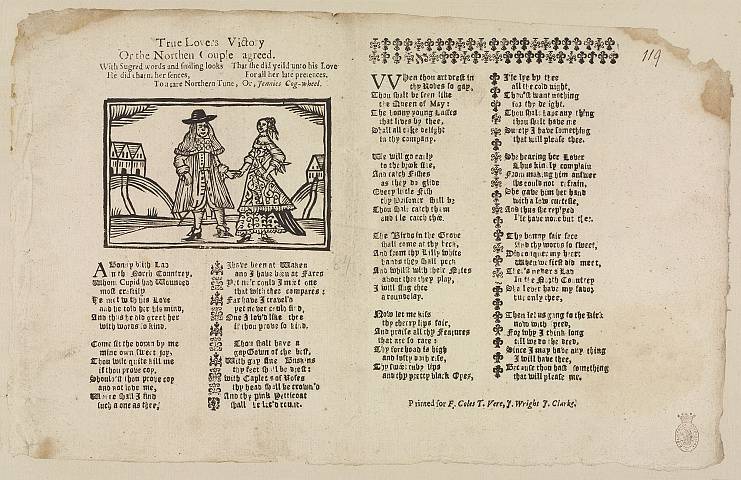 True Lovers Victory
Or the Northen Couple agreed.
With Sugred words and smiling looks
He did charm her sences,
That she did yeild unto his Love
For all her late pretences.
To a rare Northern Tune, Or, Jennies Cog-wheel.
A Bonny blith Lad
in th North Countrey,
Whom Cupid had Wounded
most
He met with his Love
and he told her his mind,
And thus he did greet her
with words so kind.
Come sit the down by me
mine own sweet joy,
Thou wilt quite kill me
if thou prove coy,
Should'st thou prove coy
and not love me,
Where shall I find
such a one as thee,
I have been at Waken
and I have been at Fares
Yet ne'r could I meet one
that with thee compares:
Far have I travel'd
yet never could find,
One I lov'd like thee
if thou prove so kind.
Thou shalt have a
gay Gown of the best,
With gay fine Buskins
thy feet shall be drest:
With Caplets of Roses
thy head shall be crown'd
And thy pink Petticoat
shall be
119
WHen thou art drest in
thy Robes so gay,
Thou shalt be seen like
the Queen of May:
The bonny young Lasses
that lives by thee,
Shall all take delight
in thy company.
We will go early
to the brook side,
And catch Fishes
as they do glide
Every little Fish
thy Prisoner shall be
Thou shalt catch them
and ile catch thee.
The Birds in the Grove
shall come at thy beck,
And from thy Lilly white
hands they shall peck
And whilst with their Notes
about thee they play,
I will sing thee
a roundelay.
Now let me kiss
thy cherry lips fair,
And praise all thy Features
that are so rare:
Thy forehead is high
and lofty doth rise,
Thy sweet ruby lips
and thy pretty black Eyes,
I'le lye by thee
all the cold night,
Thou'st want nothing
for thy delight.
Thou shalt have any thing
thou shalt have me
Surely I have something
that will please thee.
She hearing her Lover
thus kindly complain
From making him answer
she could not refrain,
She gave him her hand
with a low curtesie,
And thus she replyed
I'le have none but thee.
Thy bonny fair face
And thy words so sweet,
Did conquer my heart
When we first did meet,
There's never a Lad
In the North Countrey
Shall ever have my favor
but only thee,
Then let us gang to the Kirk
now with speed,
For why I think long
till we do the deed,
Since I may have any thing
I will have thee,
Because thou hast something
that will please me.
Printed for F. Coles T. Vere, J. Wright J. Clarke.